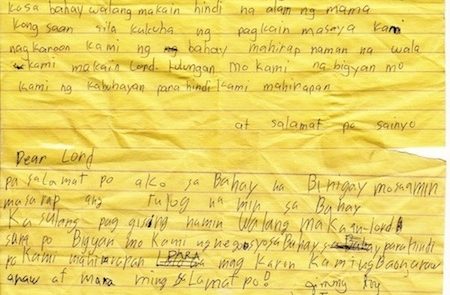 kasa bahay walang makain hindi na alam ng mama
kong saan sila kukuha ng pagkain masaya kami
nagkaroon kami ng bahay mahirap naman na wala
kami makain Lord. tulungan mo kami na bigyan mo
kami ng kabuhayan para hindi kami mahirapan
at salamat po sainyo
Dear Lord
pa salamat po ako sa Bahay na Binigay mosaamin
masarap ang tulog na min sa Bahay
Ka salang pag gising namin walang ma Kaan lord
sana po Bigyan mo Kami ng negosyo sa Buhay para hindi
po Kami mahirapan PARA mag Karon Kaming
araw at mara ming SaLamat po!